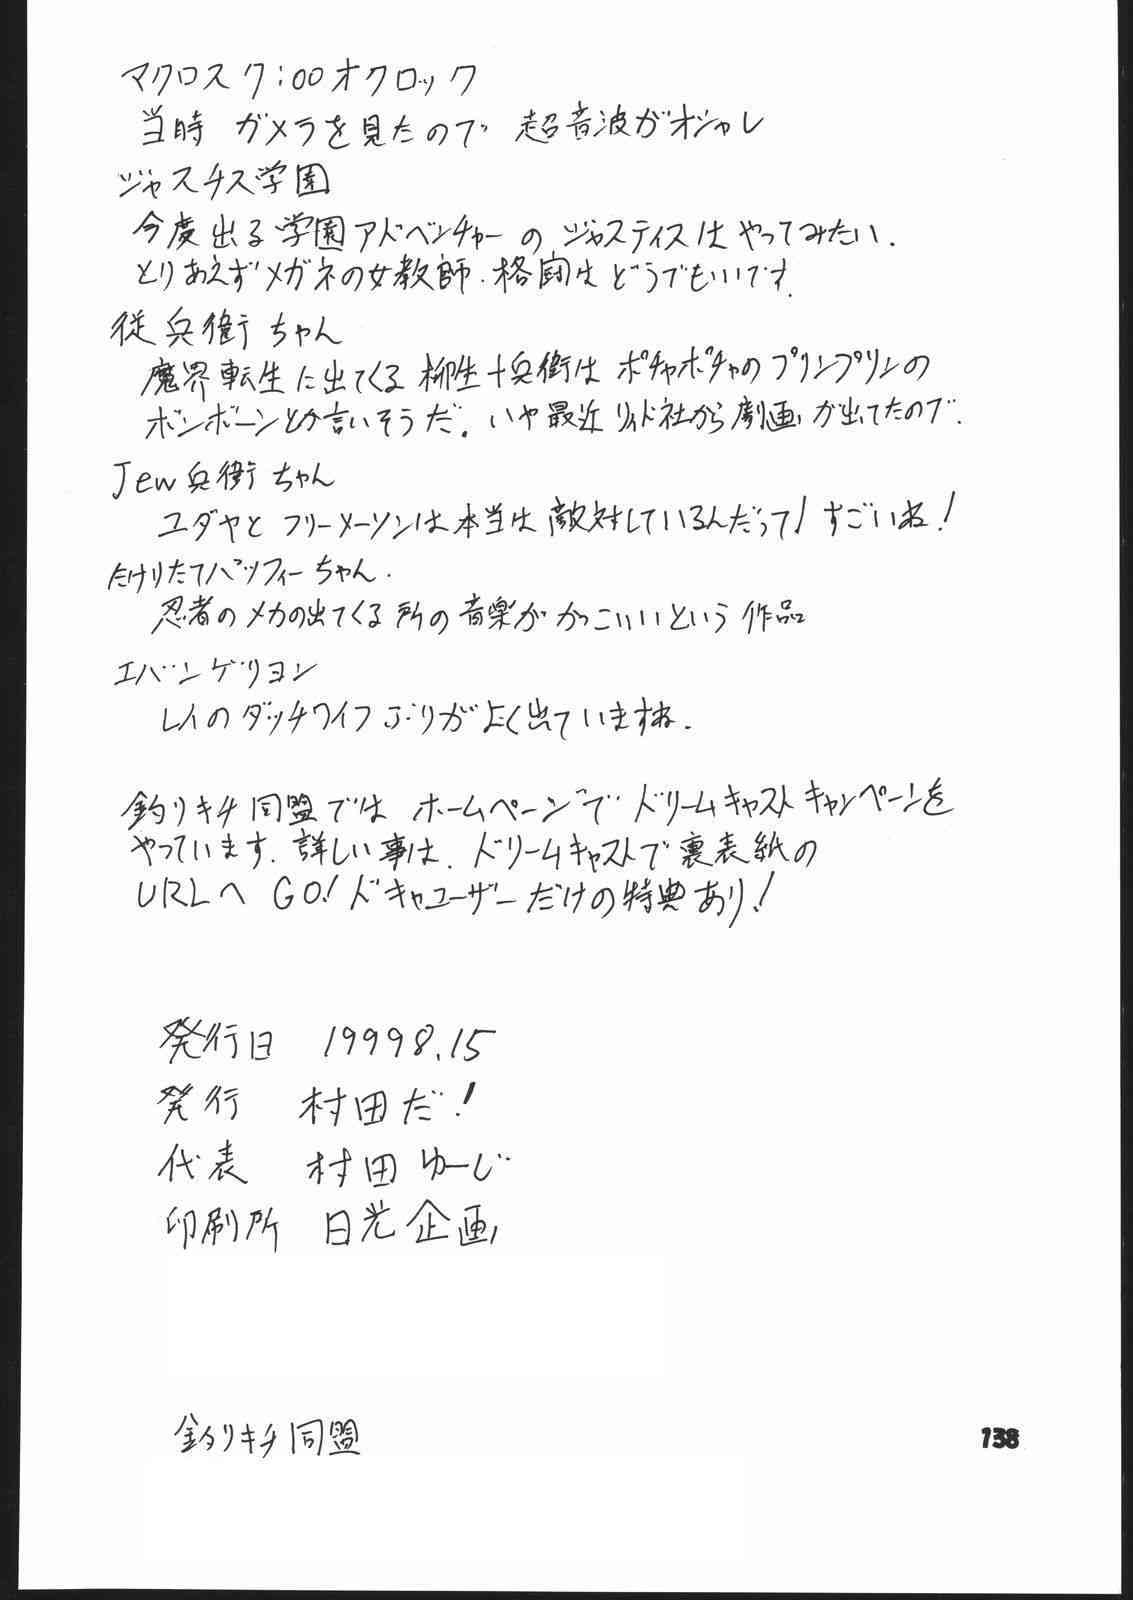 マクロス ク:00オクロック
当時 ガメラを見たので 超音波がオシャレ
ジャスチス学園
今度出る学園アドベンチャーの ジャスティスは やってみたい.
とりあえずメガネの女教師.格闘はどうでもいいです.
従兵衛ちゃん
魔界転生に出てくる柳生十兵衛は ポチャポチャのプリンプリンの
ボンボーンとか言いそうだ。いや最近 リイド社から劇画が出てたので.
Jew兵衛ちゃん
ユダヤと フリーメーソンは本当は敵対しているんだって!すごいね!
たけりたてパッフィーちゃん.
忍者のメカの出てくる所の音楽が かっこいいという 作品
エバンゲリヨン
レイのダッチワイフぶりがよく出ていますね.
釣りキチ同盟では ホームページで ドリームキャストキャンペーンを
やっています.詳しい事は.ドリームキャストで裏表紙の
URLへ GO!ドキャユーザーだけの特典あり!
発行日 19998.15
発行 村田だ!
代表 村田ゆーじ
印刷所 日光企画
釣りキチ同盟
138